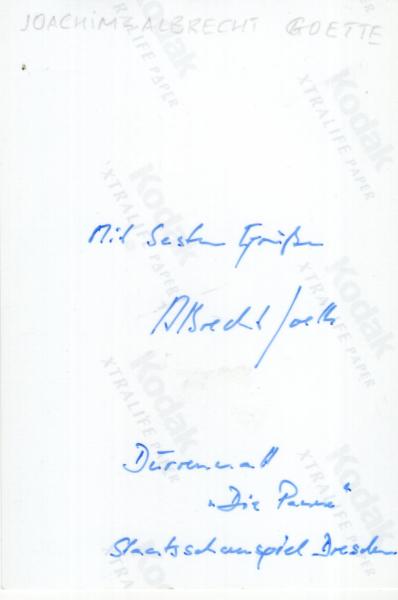 JOACHIM ALBRECHT GOETTE
Kodak
XTRALIFE PAPER
Kodak
XTRALIFE PAPER
Kodak
XTRALIFE PAPER
Mit besten Grüßen
Kodak
XTRALIFE PAPER
Albrecht Goette
Kodak
XTRALIFE PAPER
Dürrenmatt
Kodak
XTRALIFE PAPER
„Die Panne“
Staatsschauspiel Dresden